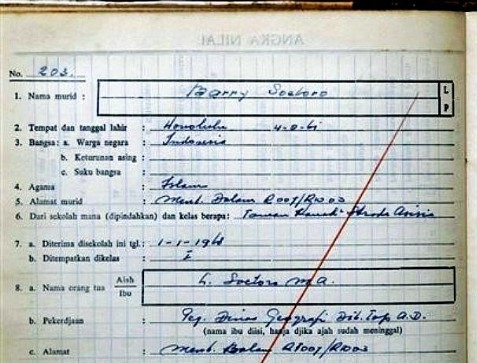 ANGKA NILAI
No. 203.
1. Nama murid : Barry Soetoro L P
2. Tempat dan tanggal lahir : Honolulu 4-8-61
3. Bangsa : a. Warga negara : Indonesia
b. Keturunan asing :
c. Suku bangsa :
4. Agama : Islam
5. Alamat murid : Ment. Dalam R007/R003
6. Dari sekolah mana (dipindahkan) dan kelas berapa : Taman Strada Asisia
7. a. Diterima disekolah ini tgl. : 1-1-1968
b. Ditempatkan dikelas : I
8. a. Nama orang tua Ajah / Ibu L. Soetoro M.A.
b. Pekerdjaan : Peg. Dinas Geografi Dit. Top. A.D.
(nama ibu diisi, hanja djika ajah sudah meninggal)
c. Alamat : Ment. Dalam R007/R003